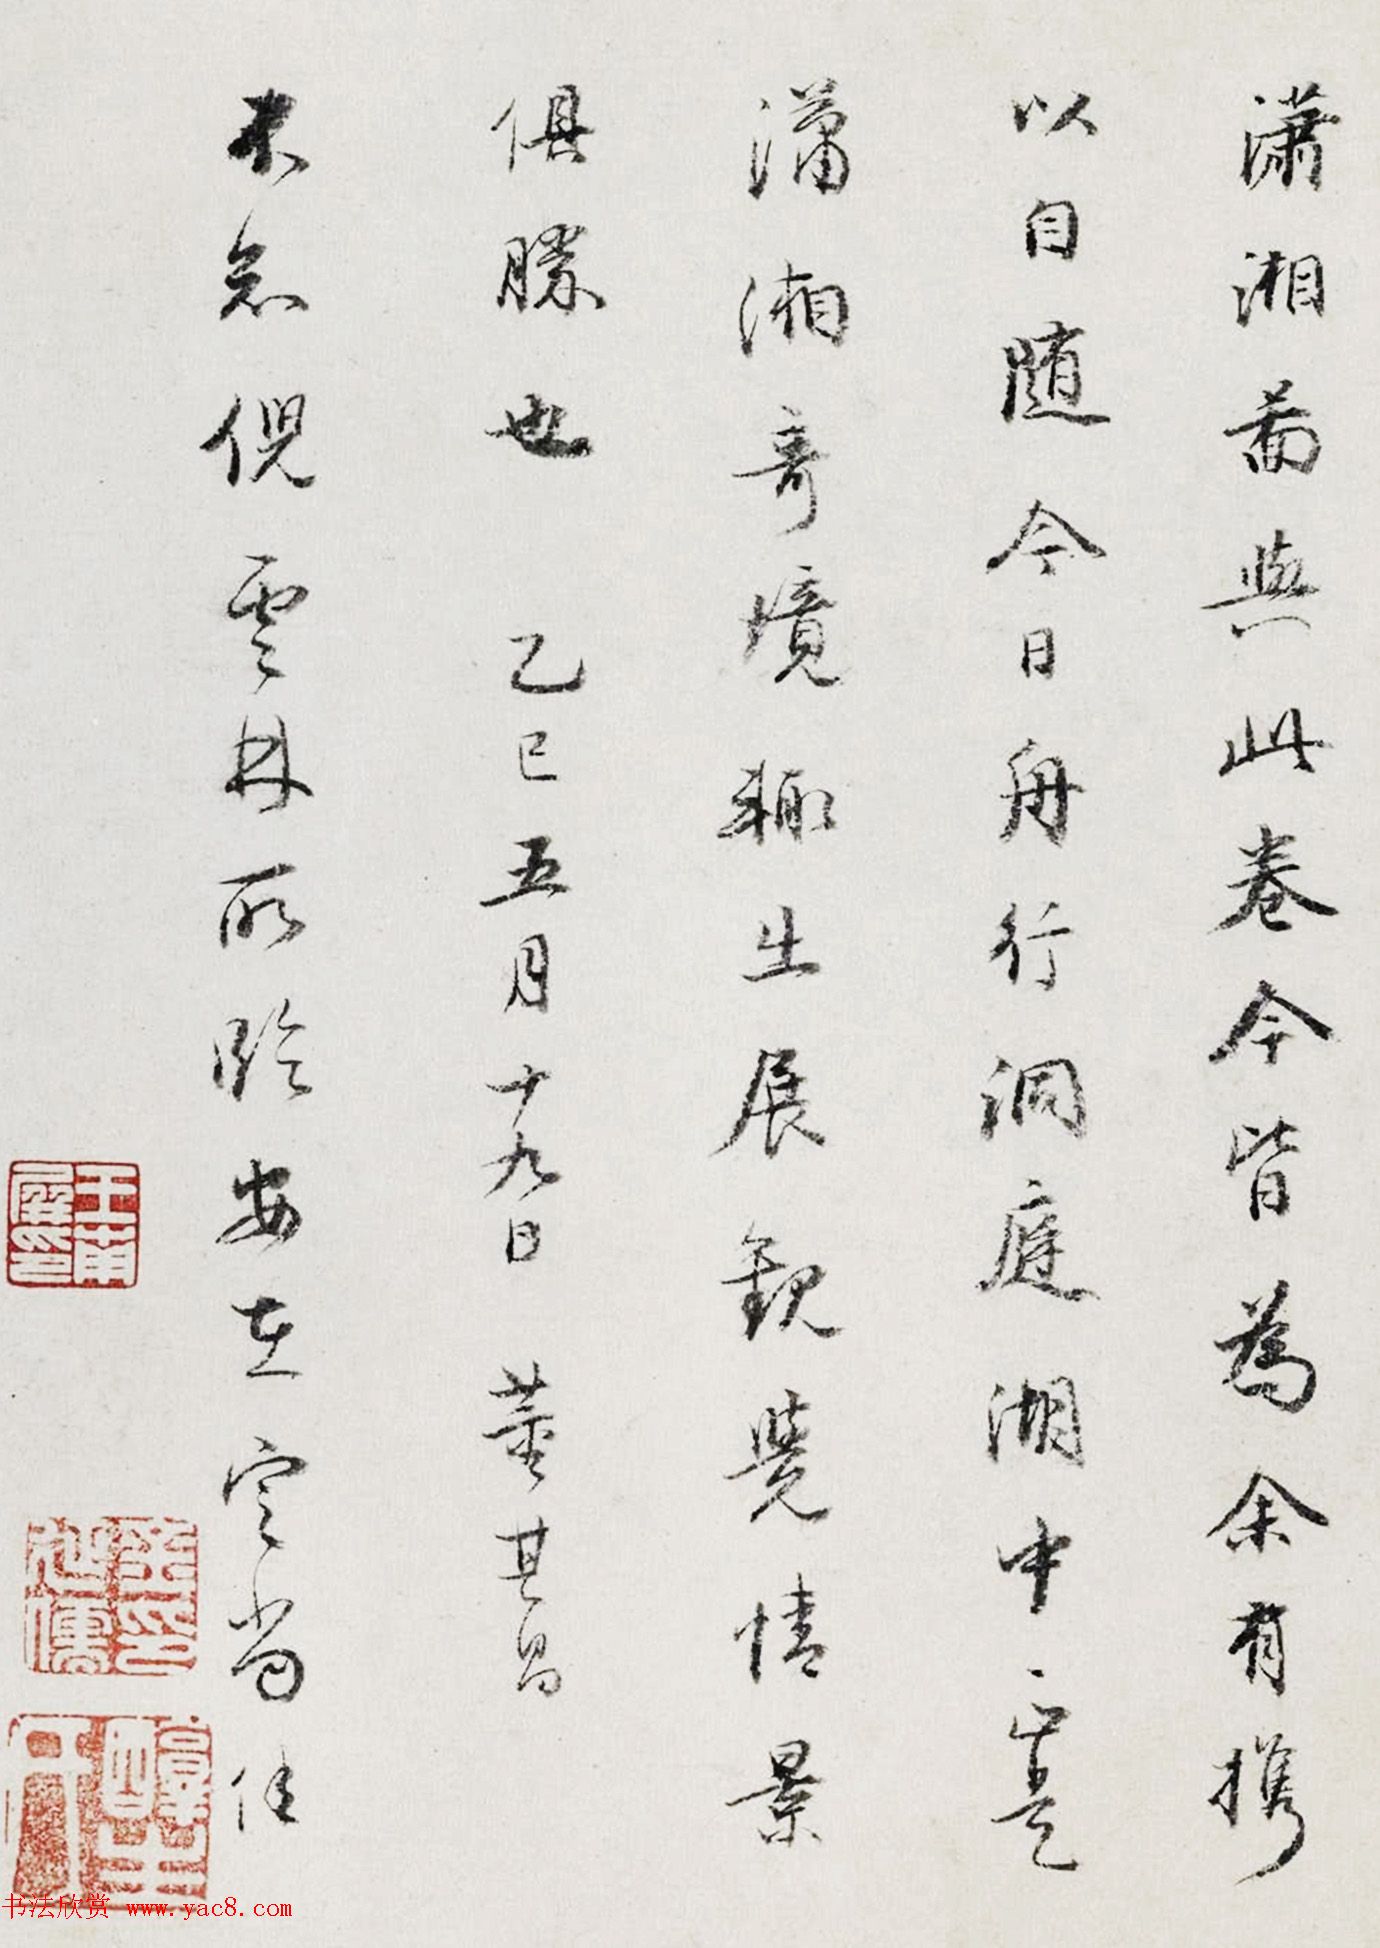 瀟湘圖與此卷今皆為余有攜
以自隨今日舟行洞庭湖中正是
瀟湘奇境輒出展觀覺情景
俱勝也 乙巳五月十九日 董其昌
未知倪雲林所臨安在定尚佳
书法欣赏 www.yac8.com